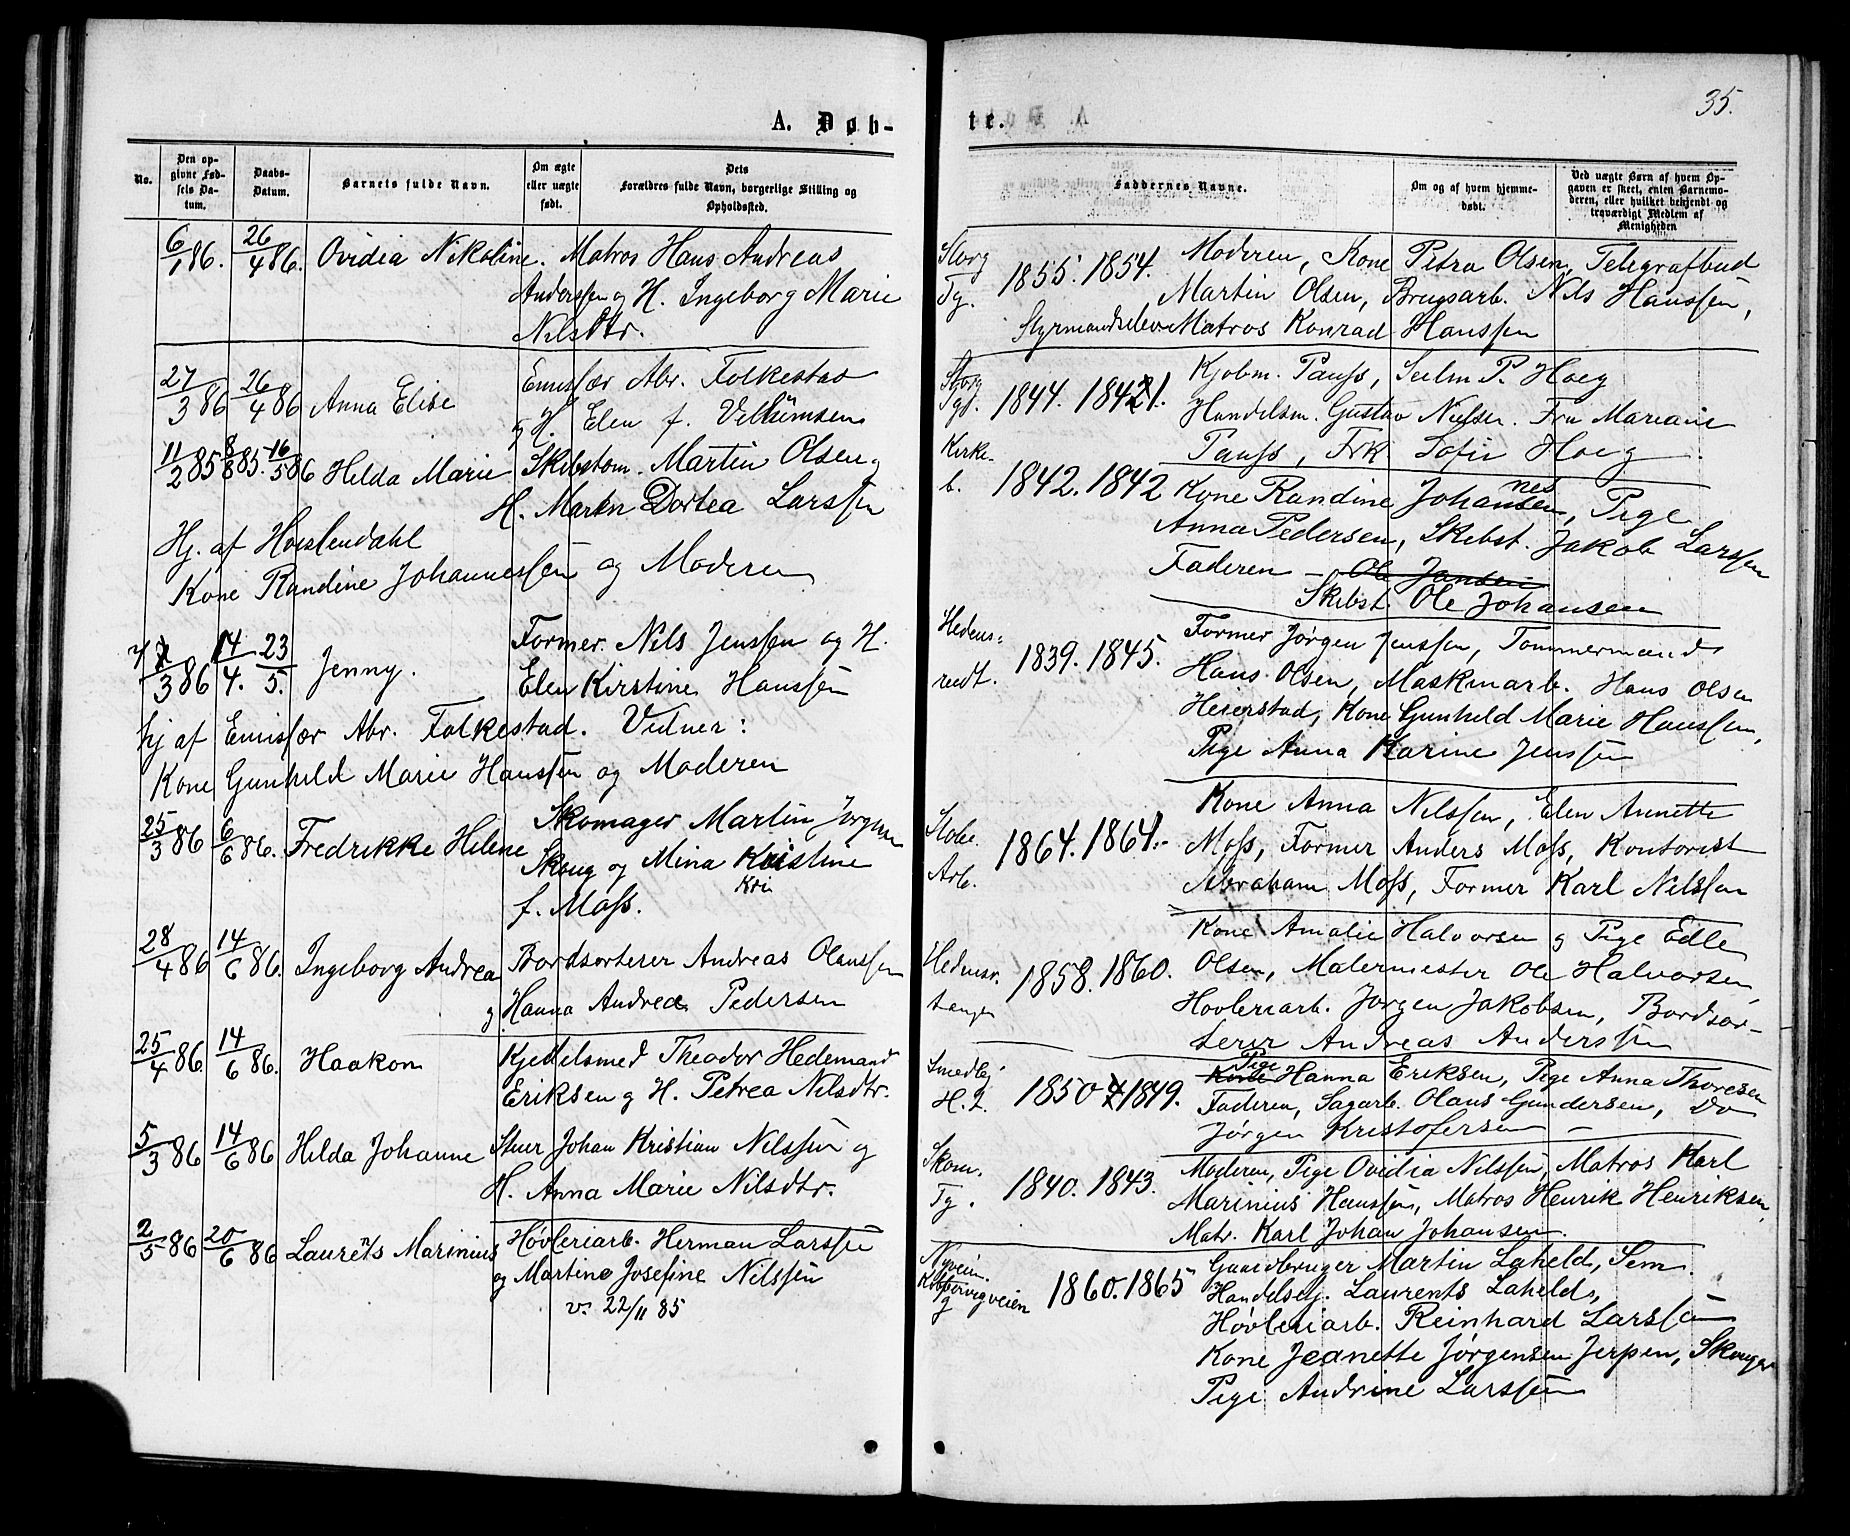 A. Døb-
No.
Den op-
givne Fød-
sels Da-
tum.
Daabs-
Datum.
Barnets fulde Navn.
Om ægte
eller uægte
født.
Dets
Forældres fulde Navn, borgerlige Stilling og
Opholdssted.
6/1 86. 26/4 86. Ovidia Nikoline. Matros Hans Andreas
Anderssen og H. Ingeborg Marie
Nilsdtr.
27/3 86 26/4 86 Anna Elise Emissær Abr. Folkestad
og H. Elen f. Velhumsen
11/2 85 8/8 85. 16/5 86 Helda Marie Skibstøm. Martin Olsen og
H. Maren Dortea Larssen
Hj. af Hoelendahl
Kone Randine Johannessen og Moderen
3 86 14/4. 23/5. Jenny. Former Nils Jenssen og H.
Elen Kirstine Hanssen
hj af Emissær Abr. Folkestad. Vidner:
Kone Gunhild Marie Hanssen og Moderen
25/3 86 6/6 86. Fredrikke Helene Skomager Martin Jørgen
Skoug og Mina Kristine
Kri
f. Moss.
28/4 86 14/6 86. Ingeborg Andrea Bordsorterer Andreas Olaussen
og Hanna Andrea Pedersen
25/4 86 14/6 86. Haakon Kjedelsmed Theodor Hedemand
Eriksen og H. Petrea Nilsdtr.
5/3 86 14/6 86 Helda Johanne Stuer Johan Kristian Nilssen og
H. Anna Marie Nilsdtr.
2/5 86 20/6 86 Laurents Marinius Høvleriarb. Herman Larssen
og Martine Josefine Nilssen
v. 22/11 85
te.
35.
Faddernes Navne.
Om og af hvem hjemme-
døbt.
Ved uægte Børn af hvem Op-
gaven er skeet, enten Barnemo-
deren, eller hvilket bekjendt og
troværdigt Medlem af
Menigheden
Storg 1855. 1854. Moderen, Kone Petra Olsen, Telegrafbud
Tg. Martin Olsen, Brugsarb. Nils Hanssen,
Styrmandselev Matros Konrad Hanssen
Storg 1844. 1841. Kjøbm. Pauss, Seilm P. Hoeg
Tgt. Handelsm. Gustav Nielsen. Fru Mariane
Pauss, Frk Sofie Hoeg
Kirke-
b. 1842. 1842 Kone Randine Johannessen, Pige
Anna Pedersen, Skibst. Jakob Larssen
Faderen – Ole Jansen
Skibst. Ole Johansen
Hedens=
rudt. 1839. 1845. Former Jørgen Jenssen, Tømmermand
Hans Olsen, Maskinarb. Hans Olsen
Heierstad, Kone Gunhild Marie Hanssen,
Pige Anna Karine Jenssen
Støbe.
Arb. 1864. 1864. Kone Anna Nilssen, Elen Annette
Moss, Former Anders Moss, Kontorist
Abraham Moss, Former Karl Nilssen
Hedensr.
tangen 1858. 1860. Kone Amalie Halvorsen og Pige Edle
Olsen, Malermester Ole Halvorsen,
Høvleriarb. Jørgen Jakobsen, Bordsor-
terer Andreas Anderssen
Smedbj
H. 2. 1850 1849. Pige Hanna Eriksen, Pige Anna Thoresen
Faderen, Sagarb. Olaus Gundersen, Do
Jørgen Kristofersen –
Skom.
Tg. 1840. 1843. Moderen, Pige Ovidia Nilssen, Matros Karl
Marinius Hanssen, Matros Henrik Henriksen,
Matr. Karl Johan Johansen.
Nyveien.
1860. 1865 Gaardbruger Martin Laheld, Sem.
Handelsbj. Laurents Laheld,
Høvleriarb. Reinhard Larssen
Kone Jeanette Jørgensen Jerpen, Skouger
Pige Andrine Larssen